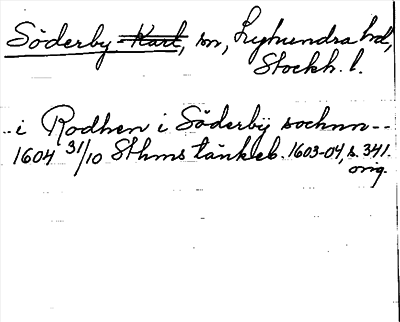 Söderby Karl, sn, Lyhundra hd,
Stockh. l.
..i Rodhen i Söderby sochnn--
1604 31/10 Sthms tänkeb. 1603-04, s. 341.
orig.